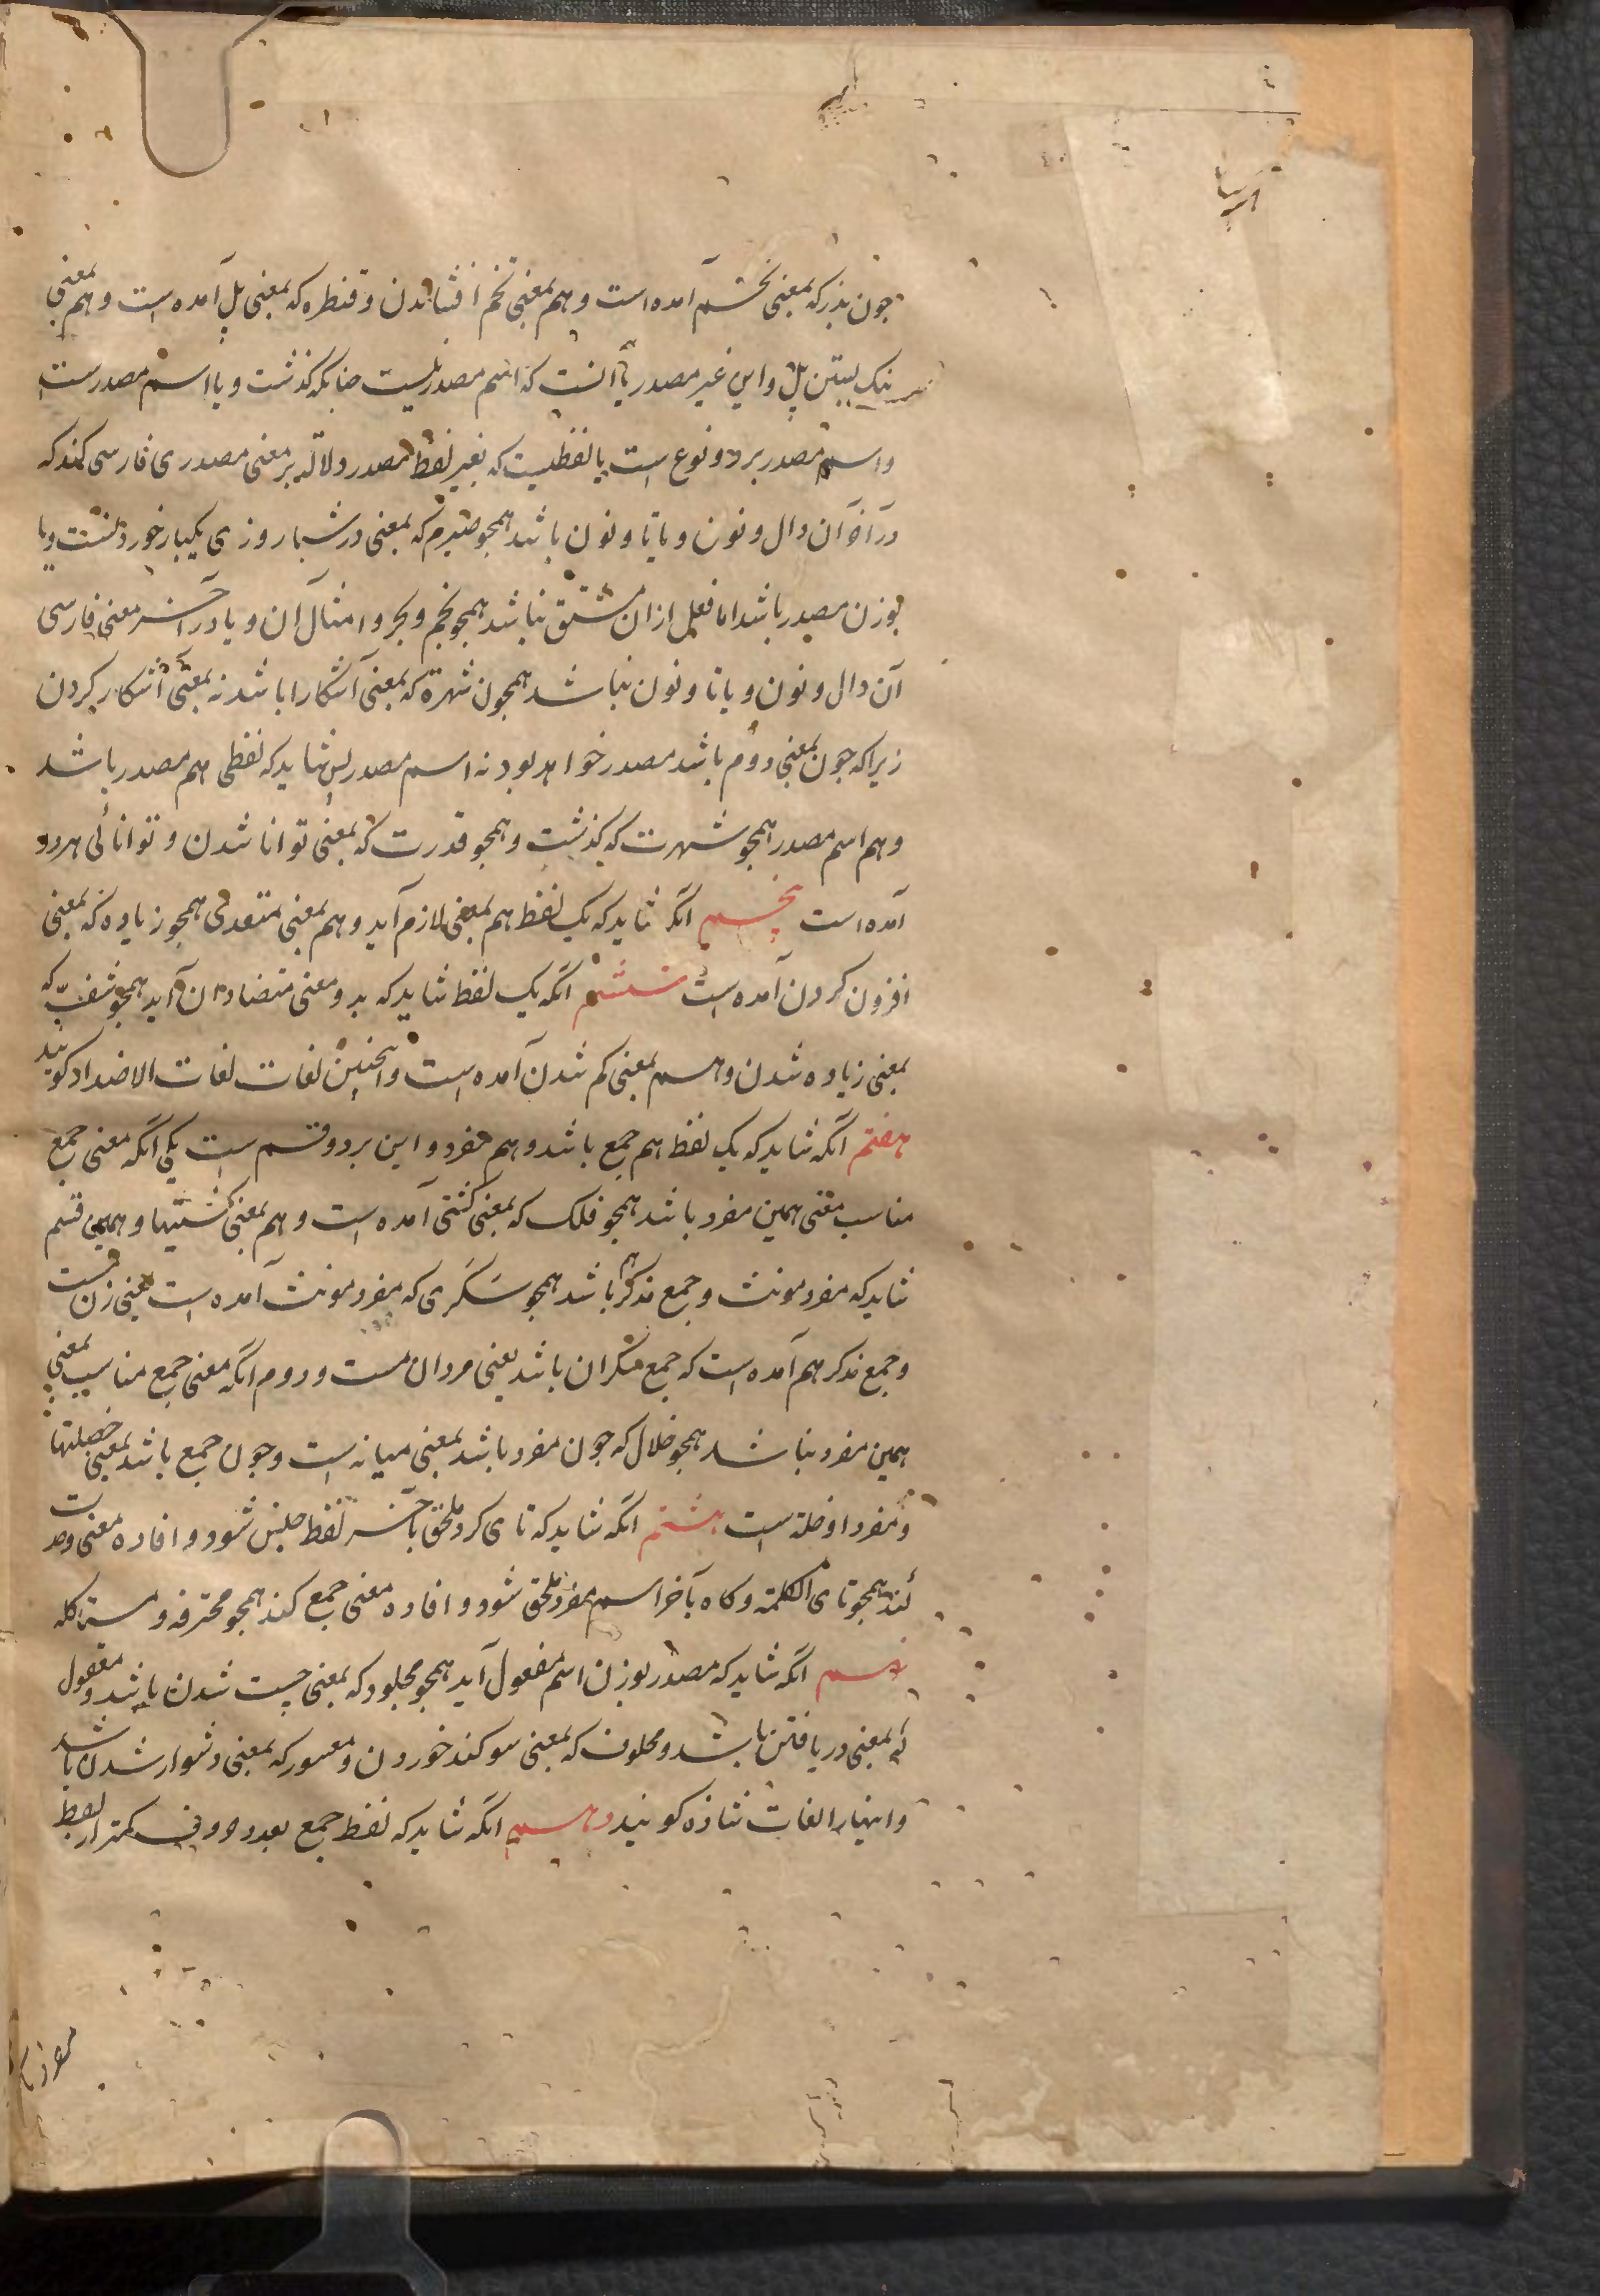 چون بذر که بمعنی تخم آمده است و هم بمعنی تخم افشاندن و قنطره که بمعنی پل آمده است و هم بمعنی
بستن پل و این غیر مصدر یا آنست که اسم مصدر نیست چنانکه گذشت و یا اسم مصدرست
و اسم مصدر بر دو نوع است یا لفظیست که بغیر لفظ مصدر دلالة بر معنی مصدری فارسی کند که
در آخر آن دال و نون و یا تا و نون باشد همچو صیرم که بمعنی در شبا روزی یکبار خوردنست و یا
بوزن مصدر باشد اما فعلی ازان مشتق نباشد همچو و امثال آن و یا در آخر معنی فارسی
آن دال و نون و یا تا و نون نباشد همچون شهرة که بمعنی آشکارا باشد نه بمعنی آشکار کردن
زیرا که چون بمعنی دوم باشد مصدر خواهد بود نه اسم مصدر پس شاید که لفظی هم مصدر باشد
و هم اسم مصدر همچو شهرت که گذشت و همچو قدرت که بمعنی توانا شدن و توانائی هر دو
آمده است پنجم آنکه شاید که یک لفظ هم بمعنی لازم آید و هم بمعنی متعدی همچو زیاده که بمعنی
افزون کردن آمده است ششم آنکه یک لفظ شاید که بدو معنی متضاد آن آید همچو شف که
بمعنی زیاده شدن و هم بمعنی کم شدن آمده است و اینچنین لغات لغات الاضداد گویند
هفتم آنکه شاید که یک لفظ هم جمع باشد و هم مفرد و این بر دو قسم است یکی آنکه معنی جمع
مناسب معنی همین مفرد باشد همچو فلک که بمعنی کشتی آمده است و هم بمعنی کشتیها و همین قسم
شاید که مفرد مونث و جمع مذکر هم باشد همچو سکری که مفرد مونث آمده است یعنی زن مست
و جمع مذکر هم آمده است که جمع سکران باشد یعنی مردان مست و دوم آنکه معنی جمع مناسب بمعنی
همین مفرد نباشد همچو خلال که چون مفرد باشد بمعنی میانه است و چون جمع باشد بمعنی خصلتها
و مفرد او خلة است هشتم آنکه شاید که تای گرد ملحق بآخر لفظ جنس شود و افاده معنی وحدت
کند همچو تای الکلمة و گاه بآخر اسم مفرد ملحق شود و افاده معنی جمع کند همچو محترفه و
نهم آنکه شاید که مصدر بوزن اسم مفعول آید همچو مجلود که بمعنی چست شدن باشد و معقول
که بمعنی دریافتن باشد و محلوف که بمعنی سوگند خوردن و معسور که بمعنی دشوار شدن باشد
و اینها را لغات شاذه گویند دهم آنکه شاید که لفظ جمع بعدد حروف کمتر از لفظ